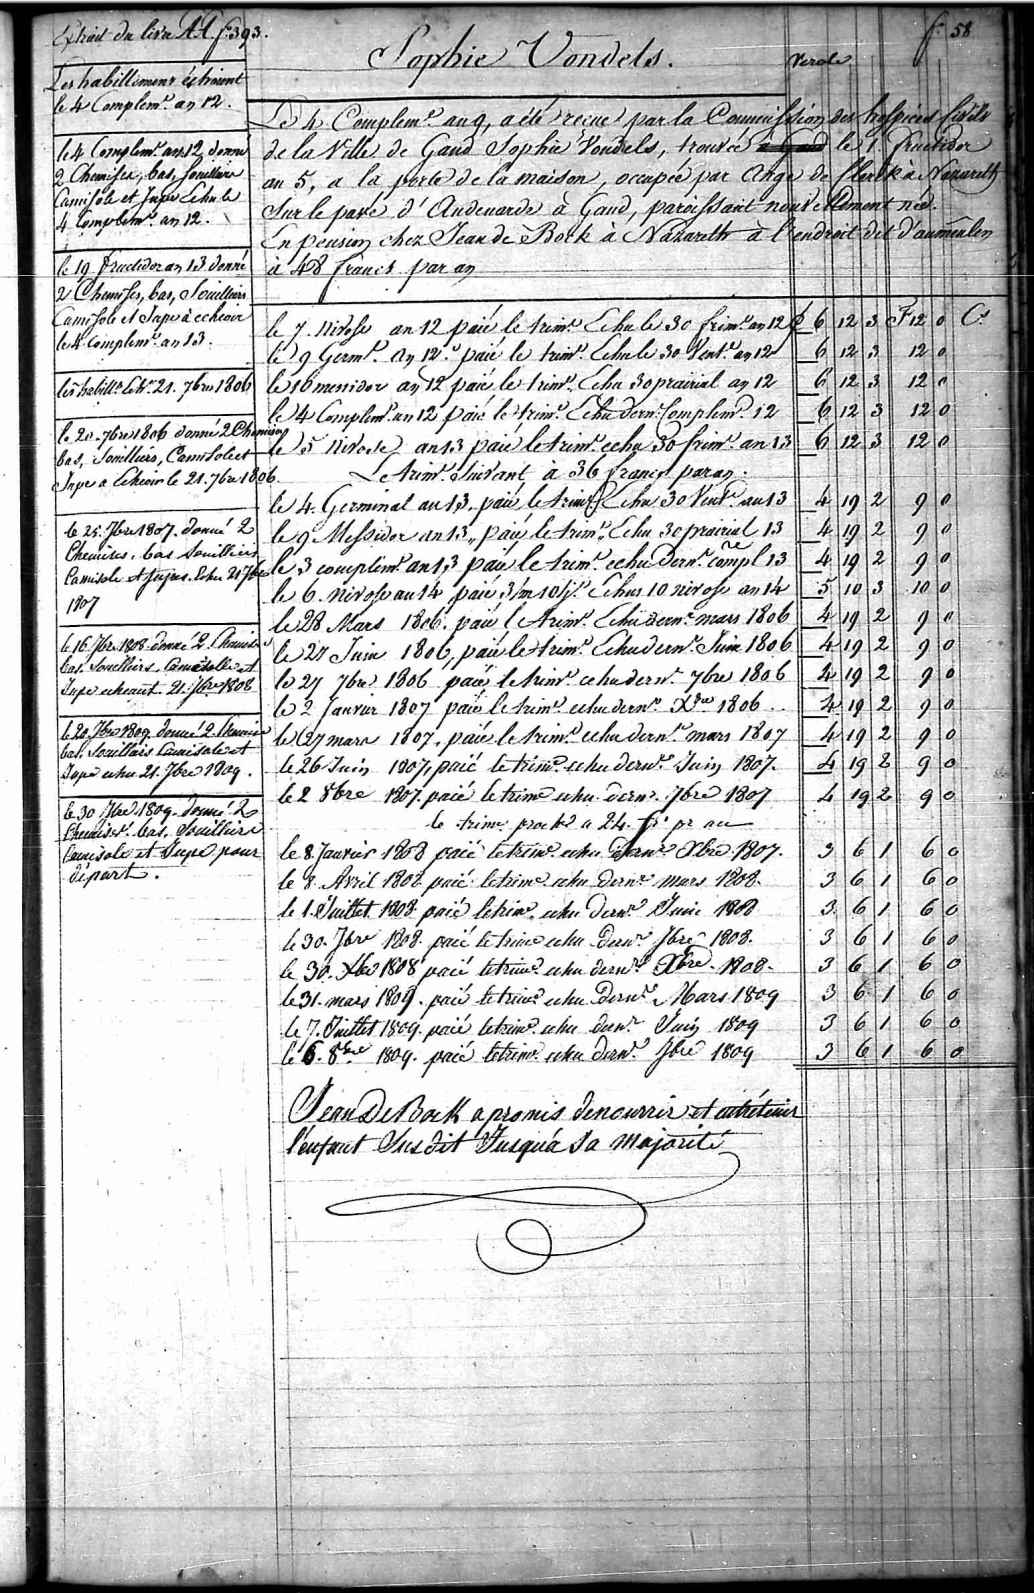 Extrait du livre AA f° 393.
f° 58
Sophie Vondels.
Verole
Les habillemens échoient
le 4 Complem.e an 12.
le 4 Complem.e an 12 donné
2 Chemises, bas, souilliers
Camisole et Jupe Echu le
4 Complem.e an 12.
le 19 fructidor an 13 donné
2 Chemises, bas, Souilliers
Camisole et Jupe à echeoir
le 4 complem.e an 13.
les habill.s Ech.t 21. 7bre 1806
le 20. 7bre 1806 donné 2 Chemises
bas, Souilliers, Camisole et
Jupe a Echeoir le 21. 7bre 1806.
le 25. 7bre 1807. donné 2
Chemises. bas souilliers
Camisole et Jupes. Echu 21 7bre
1807
le 16. 7bre 1808 donné 2 Chemises
bas, Souilliers, Camisolle et
Jupe echeant. 21. 7bre 1808
le 20. 7bre 1809. donné 2 Chemises
bas, Souilliers Camisole et
Jupe echu 21. 7bre 1809.
le 30 7bre 1809. donné 2
Chemises. bas, Souilliers
Camisole et Jupe pour
départ.
Le 4 Complem.e an 9, a été reçue par la Commission des hospices Civils
de la Ville de Gand Sophie Vondels, trouvée à Gand le 1. fructidor
an 5, a la porte de la maison, occupée par Ange de Clerck à Nazareth
sur le pavé d'Audenarde à Gand, paroissant nouvellement née.
En pension chez Jean de Bock à Nazareth à l'endroit dit d'
à 48 francs par an
le 7. nivose an 12 paié le trim.e Echu le 30 frim.e an 12 £ 6 12 3 F 12 0 C.s
le 9 Germ.l an 12. paié le trim.e Echu le 30 Vent.e an 12 6 12 3 12 0
le 16 messidor an 12 paié le trim.e Echu 30 prairial an 12 6 12 3 12 0
le 4 Complem.e an 12 paié le trim.e Echu dern.r Complem.e 12 6 12 3 12 0
le 5 Nivose an 13 paié le trim.e echu 30 frim.e an 13 6 12 3 12 0
Le trim.e Suivant à 36 francs par an.
le 4. Germinal an 13, paié le trim.e Echu 30 Vent.e an 13 4 19 2 9 0
le 9 Messidor an 13, paié le trim.e Echu 30 prairial 13 4 19 2 9 0
le 3 complem.e an 13 paié le trim.e echu dern.r compl.re 13 4 19 2 9 0
le 6. nivose an 14 paié 3/m 10/j.s Echus 10 nivose an 14 5 10 3 10 0
le 28 Mars 1806. paié l trim.e Echu dern.r mars 1806 4 19 2 9 0
le 27 Juin 1806, paié le trim.e Echu dern.r Juin 1806 4 19 2 9 0
le 27 7bre 1806 paié le trim.e echu dern.r 7bre 1806 4 19 2 9 0
le 2 Janvier 1807 paié le trim.e echu dern.r Xbre 1806. 4 19 2 9 0
le 27 mars 1807, paié le trim.e echu dern.r mars 1807 4 19 2 9 0
le 26 Juin 1807, paié le trim.e echu dern.r Juin 1807. 4 19 2 9 0
le 2 8bre 1807. paié le trim.e echu dern.r 7bre 1807 4 19 2 9 0
le trime proch.n a 24. fr. pr an
le 8 Janvier 1808 paié le trim.e echu dern.r Xbre 1807. 3 6 1 6 0
le 8. Avril 1808 paié le trim.e echu dern.r mars 1808. 3 6 1 6 0
le 1. Juillet 1808 paié le trim.e echu dern.r Juin 1808 3 6 1 6 0
le 30. 7bre 1808. paié le trim.e echu dern.r 7bre 1808. 3 6 1 6 0
le 30. Xbre 1808 paié le trim.e echu dern.r Xbre. 1808. 3 6 1 6 0
le 31. mars 1809. paié le trim.e echu dern.r Mars 1809 3 6 1 6 0
le 7. Juillet 1809 paié le trim.e echu dern.r Juin 1809 3 6 1 6 0
le 6. 8bre 1809. paié le trim.e echu dern.r 7bre 1809 3 6 1 6 0
Jean De Bock a promis de nourrir et entretenir
l'enfant Susdit Jusqu'à Sa majorité